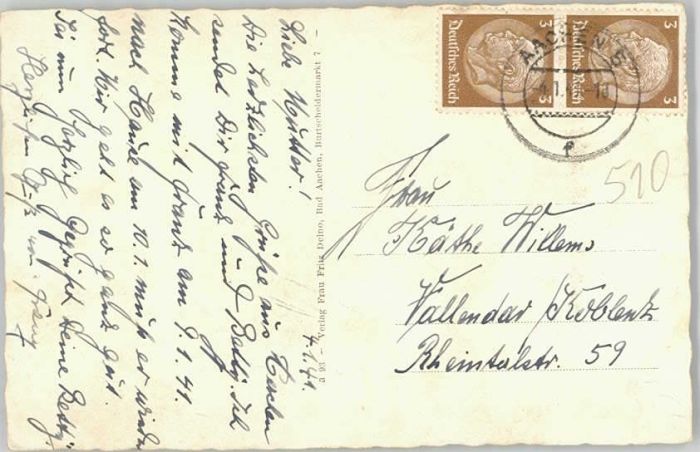 Liebe Mutter!
Die herzlichsten Grüße aus Aachen
sendet Dir Franz und Betty. Ich
komme mit Franz am 9.1.41.
nach Hause am 10.1. muß er wieder
fort. Mir geht es so ganz gut.
Sei nun herzlich gegrüßt Deine Betty
Herzlichen Gruß von Franz
7.1.41.
a 93 – Verlag Frau Fritz Delno, Bad Aachen, Burtscheidermarkt 7 –
3 Deutsches Reich
3 Deutsches Reich 3
AACHEN 5
f
510
Frau
Käthe Willems
Vallendar/Koblenz
Rheintalstr. 59